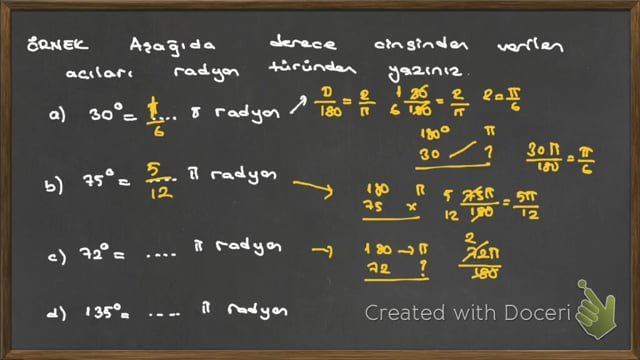 ÖRNEK Aşağıda derece cinsinden verilen
açıları radyan türünden yazınız.
a) 30° = 1/6 .... π radyan → D/180 = R/π 1 30/6 180 = R/π R = π/6
180° π
30 ?
30π/180 = π/6
b) 75° = 5/12 .... π radyan → 180 π
75 x
5 75π/12 180 = 5π/12
c) 72° = .... π radyan → 180 → π
72 ?
2 72π/180
d) 135° = .... π radyan
Created with Doceri